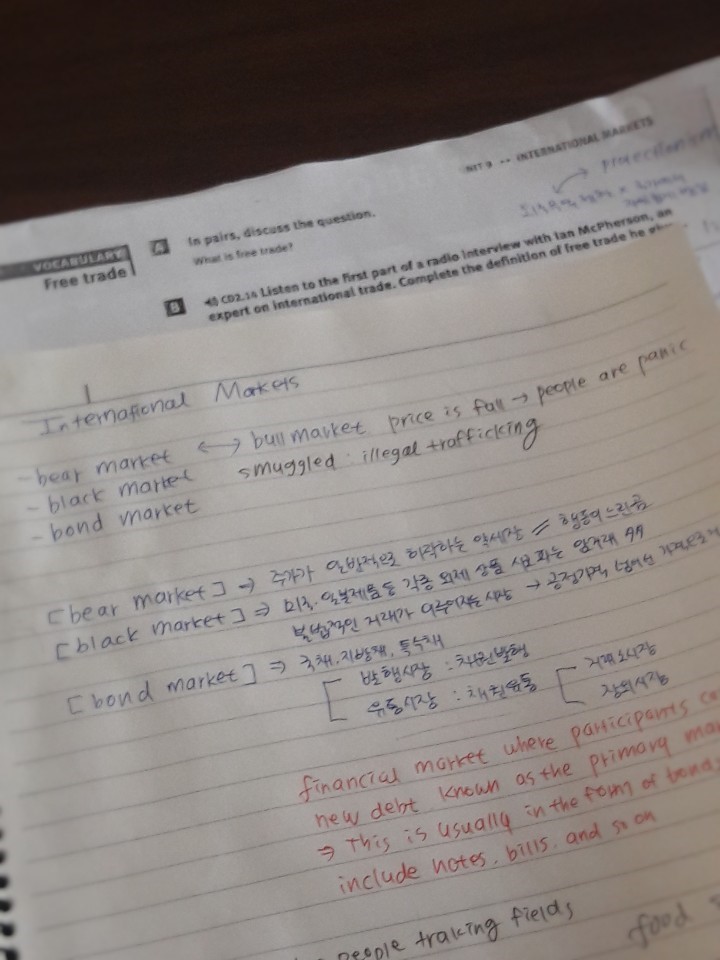 UNIT 9 -- INTERNATIONAL MARKETS
protectionism
VOCABULARY
Free trade
A In pairs, discuss the question.
What is free trade?
B CD2.14 Listen to the first part of a radio interview with Ian McPherson, an
expert on international trade. Complete the definition of free trade he
International Markets
- bear market ↔ bull market price is fall → people are panic
- black market smuggled : illegal trafficking
- bond market
[bear market] → 주가가 일반적으로 하락하는 약세장
[black market] ⇒ 미국, 일본제품 등 각종 외제 상품
불법적인 거래가 이루어지는 시장 → 공정가격
[bond market] ⇒ 국채, 지방채, 특수채
발행시장 : 채권발행
유통시장 : 채권유통
거래소시장
장외시장
financial market where participants
new debt known as the primary
⇒ this is usually in the form of bonds
include notes, bills, and so on
people traking fields
food